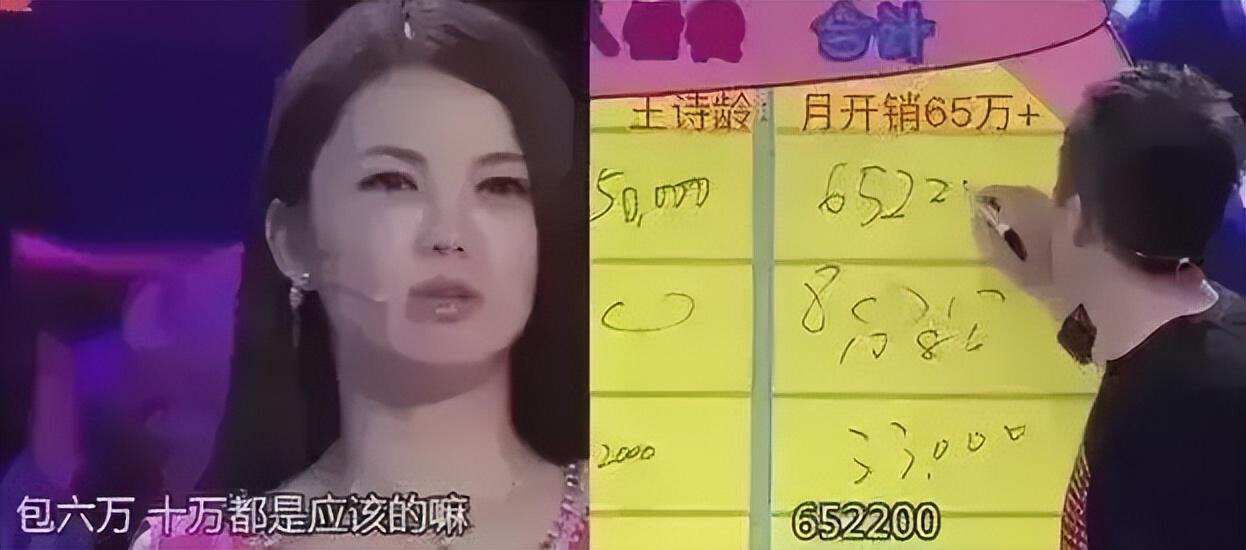 合计
王诗龄
月开销65万+
50,000
6522
33,000
2000
包六万 十万都是应该的嘛
652200